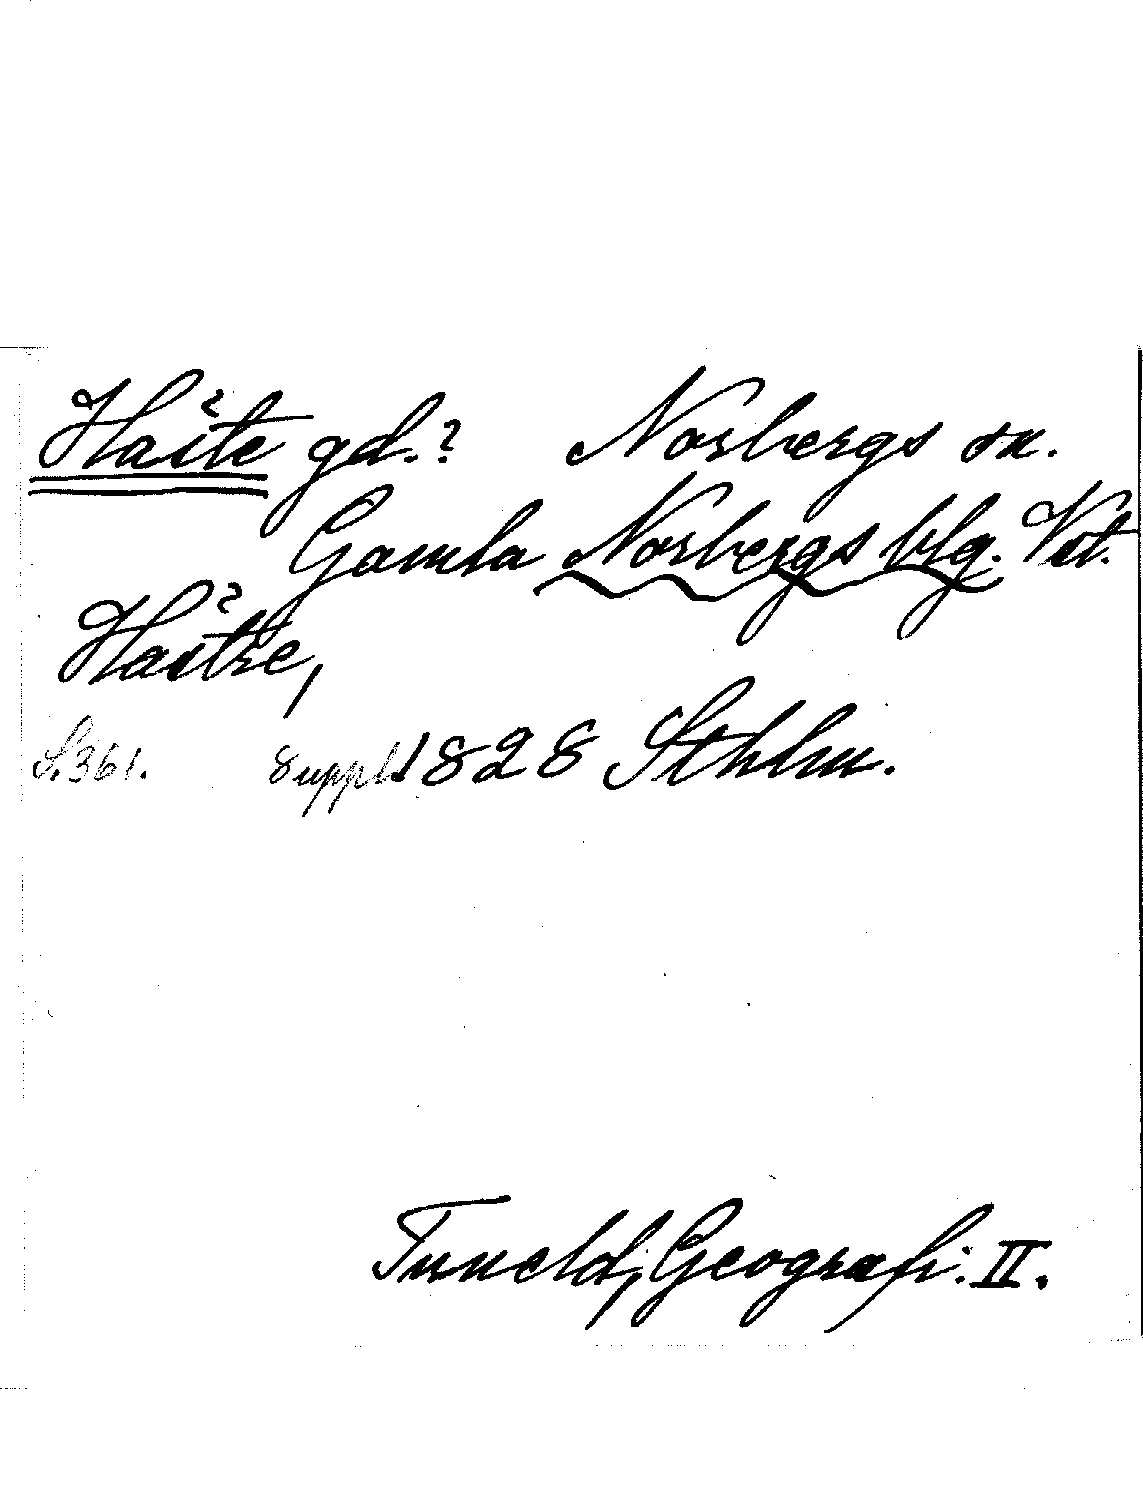 Haite gd.? Norbergs sn.
Gamla Norbergs blg. Vst.
Haitre,
S. 361. Suppl. 1828 Sthlm.
Tuneld, Geografi. II.